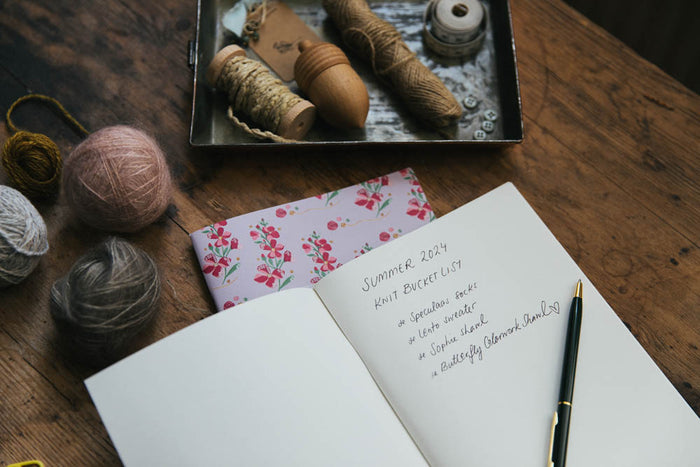 SUMMER 2024
KNIT BUCKET LIST
* Speculaas socks
* Lento sweater
* Sophie shawl
* Butterfly Colorwork Shawl ♡